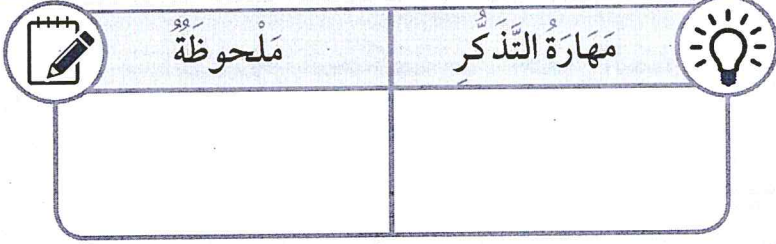 مَهَارَةُ التَّذَكُّرِ
مَلْحوظَةٌ